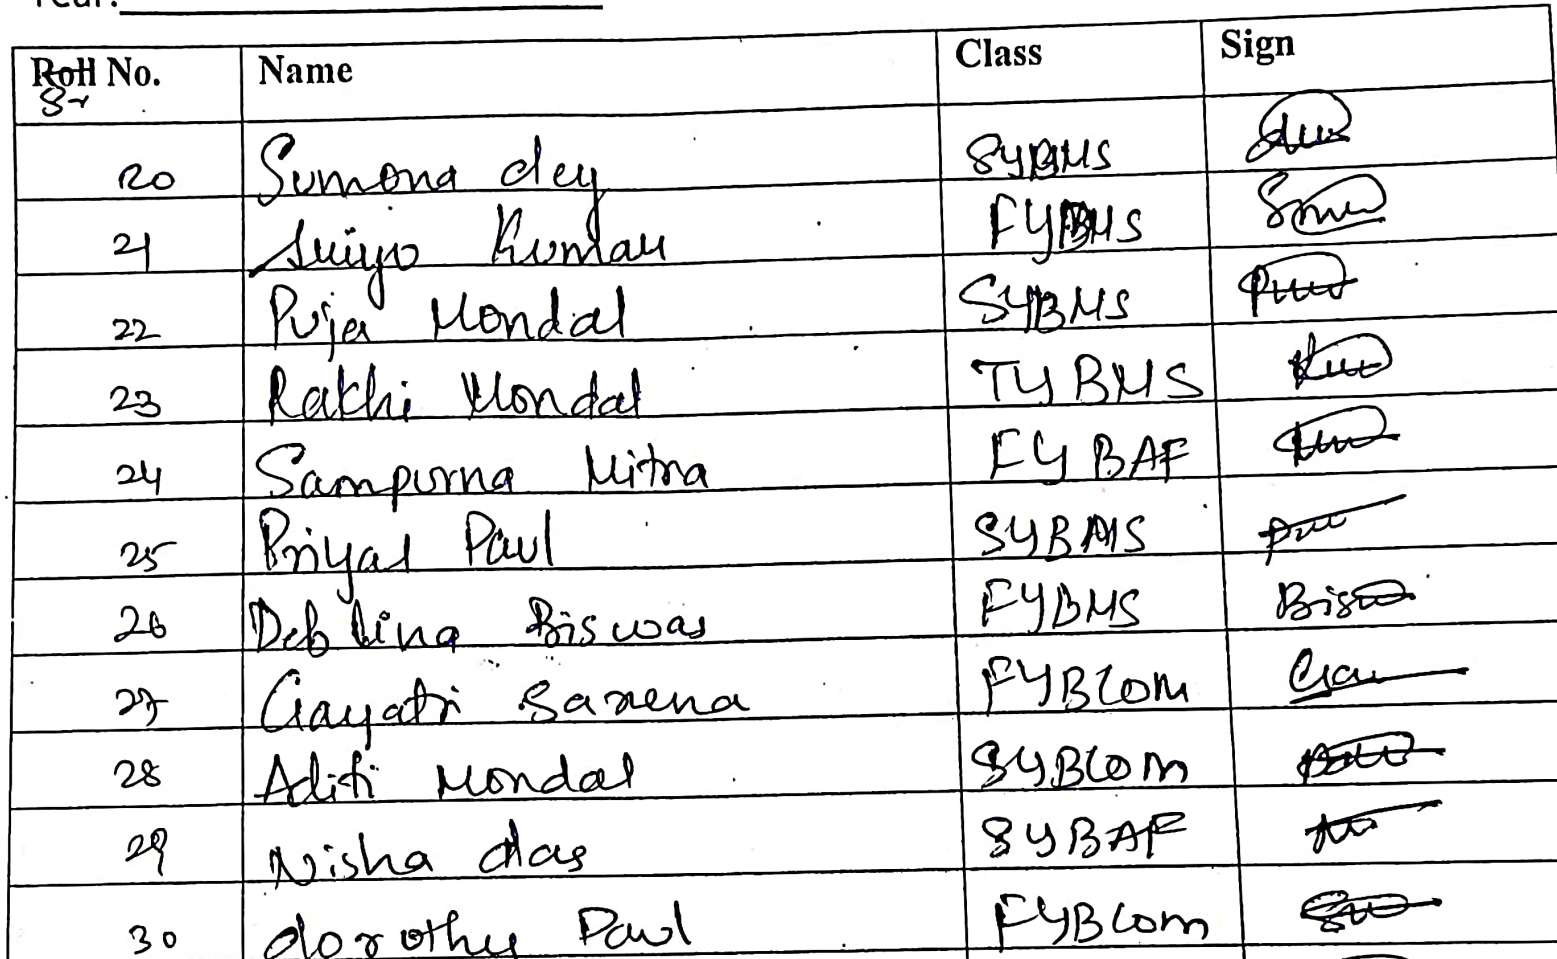 Year:
Roll No. Name Class Sign
Sr
20 Sumona dey SYBMS
21 Kumar FYBMS
22 Puja Mondal SYBMS
23 Rakhi Mondal TYBMS
24 Sampurna Mitra FYBAF
25 Priyal Paul SYBMS
26 Deblina Biswas FYBMS
27 Gayatri Saxena FYBCOM
28 Aditi Mondal SYBCOM
29 Nisha das SYBAF
30 dorothy Paul FYBCom